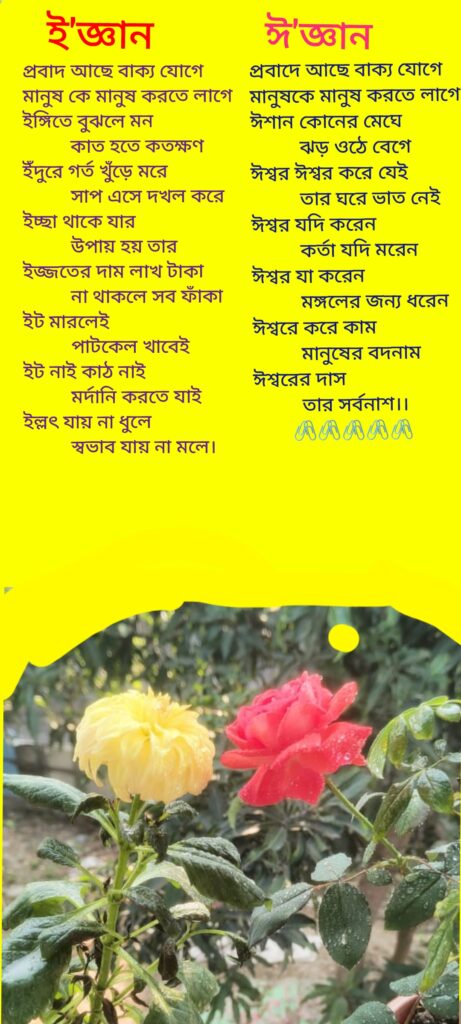 ই'জ্ঞান
প্রবাদ আছে বাক্য যোগে
মানুষ কে মানুষ করতে লাগে
ইঙ্গিতে বুঝলে মন
কাত হতে কতক্ষণ
ইঁদুরে গর্ত খুঁড়ে মরে
সাপ এসে দখল করে
ইচ্ছা থাকে যার
উপায় হয় তার
ইজ্জতের দাম লাখ টাকা
না থাকলে সব ফাঁকা
ইট মারলেই
পাটকেল খাবেই
ইট নাই কাঠ নাই
মর্দানি করতে যাই
ইল্লৎ যায় না ধুলে
স্বভাব যায় না মলে।
ঈ'জ্ঞান
প্রবাদে আছে বাক্য যোগে
মানুষকে মানুষ করতে লাগে
ঈশান কোনের মেঘে
ঝড় ওঠে বেগে
ঈশ্বর ঈশ্বর করে যেই
তার ঘরে ভাত নেই
ঈশ্বর যদি করেন
কর্তা যদি মরেন
ঈশ্বর যা করেন
মঙ্গলের জন্য ধরেন
ঈশ্বরে করে কাম
মানুষের বদনাম
ঈশ্বরের দাস
তার সর্বনাশ।।